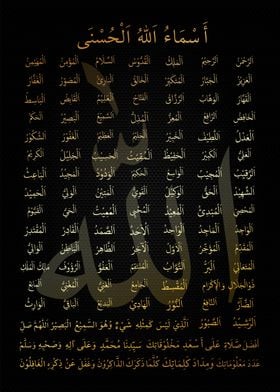 أَسْمَاءُ اللهِ الْحُسْنَى
الرَّحْمَنُ الرَّحِيْمُ الْمَلِكُ الْقُدُّوْسُ السَّلَامُ الْمُؤْمِنُ الْمُهَيْمِنُ
الْعَزِيْزُ الْجَبَّارُ الْمُتَكَبِّرُ الْخَالِقُ الْبَارِئُ الْمُصَوِّرُ الْغَفَّارُ
الْقَهَّارُ الْوَهَّابُ الرَّزَّاقُ الْفَتَّاحُ الْعَلِيْمُ الْقَابِضُ الْبَاسِطُ
الْخَافِضُ الرَّافِعُ الْمُعِزُّ الْمُذِلُّ السَّمِيْعُ الْبَصِيْرُ الْحَكَمُ
الْعَدْلُ اللَّطِيْفُ الْخَبِيْرُ الْحَلِيْمُ الْعَظِيْمُ الْغَفُوْرُ الشَّكُوْرُ
الْعَلِيُّ الْكَبِيْرُ الْحَفِيْظُ الْمُقِيْتُ الْحَسِيْبُ الْجَلِيْلُ الْكَرِيْمُ
الرَّقِيْبُ الْمُجِيْبُ الْوَاسِعُ الْحَكِيْمُ الْوَدُوْدُ الْمَجِيْدُ الْبَاعِثُ
الشَّهِيْدُ الْحَقُّ الْوَكِيْلُ الْقَوِيُّ الْمَتِيْنُ الْوَلِيُّ الْحَمِيْدُ
الْمُحْصِي الْمُبْدِئُ الْمُعِيْدُ الْمُحْيِي الْمُمِيْتُ الْحَيُّ الْقَيُّوْمُ
الْوَاجِدُ الْمَاجِدُ الْوَاحِدُ الْأَحَدُ الصَّمَدُ الْقَادِرُ الْمُقْتَدِرُ
الْمُقَدِّمُ الْمُؤَخِّرُ الْأَوَّلُ الْآخِرُ الظَّاهِرُ الْبَاطِنُ الْوَالِي
الْمُتَعَالِي الْبَرُّ التَّوَّابُ الْمُنْتَقِمُ الْعَفُوُّ الرَّؤُوْفُ مَالِكُ الْمُلْكِ
ذُوالْجَلَالِ وَالْإِكْرَامِ الْمُقْسِطُ الْجَامِعُ الْغَنِيُّ الْمُغْنِي الْمَانِعُ
الضَّارُّ النَّافِعُ النُّوْرُ الْهَادِي الْبَدِيْعُ الْبَاقِي الْوَارِثُ
الرَّشِيْدُ الصَّبُوْرُ الَّذِي لَيْسَ كَمِثْلِهِ شَيْءٌ وَهُوَ السَّمِيْعُ الْبَصِيْرُ اللَّهُمَّ صَلِّ
أَفْضَلَ صَلَاةٍ عَلَى أَسْعَدِ مَخْلُوْقَاتِكَ سَيِّدِنَا مُحَمَّدٍ وَعَلَى آلِهِ وَصَحْبِهِ وَسَلِّمْ
عَدَدَ مَعْلُوْمَاتِكَ وَمِدَادَ كَلِمَاتِكَ كُلَّمَا ذَكَرَكَ الذَّاكِرُوْنَ وَغَفَلَ عَنْ ذِكْرِهِ الْغَافِلُوْنَ
الله